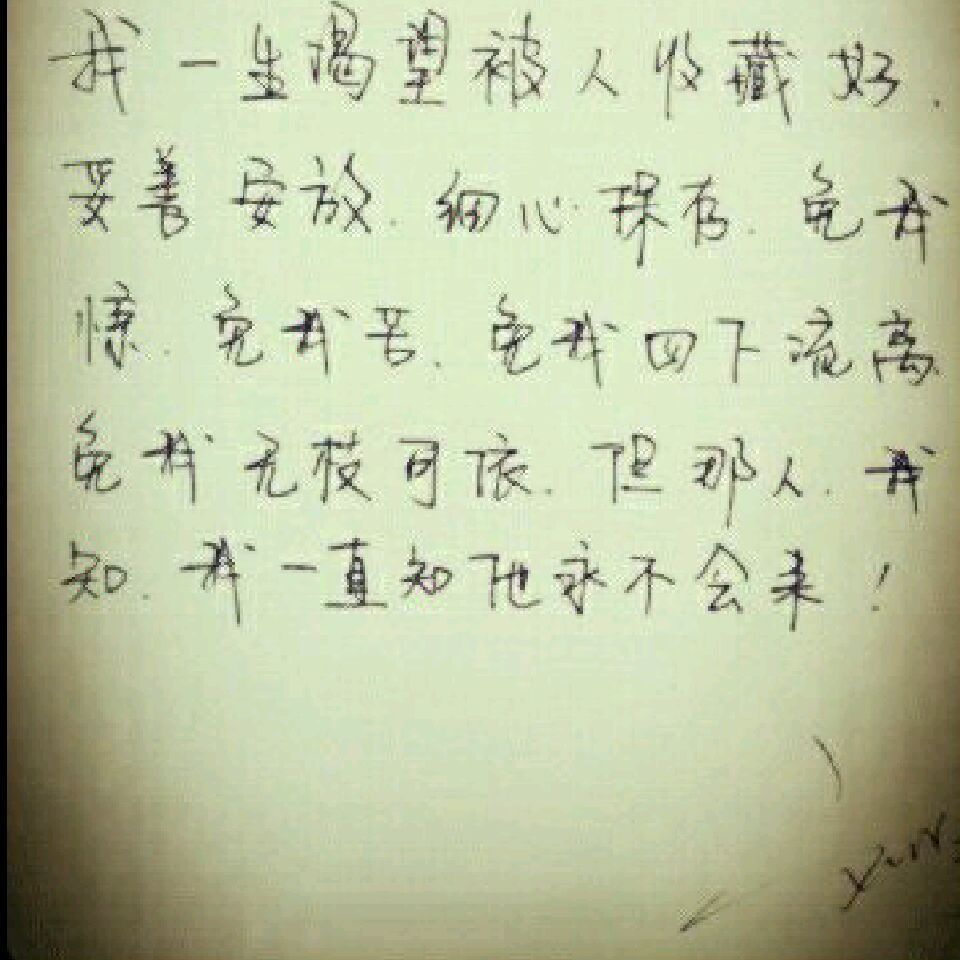 我一生渴望被人收藏好.
妥善安放.细心保存.免我
惊.免我苦.免我四下流离
免我无枝可依.但那人.我
知.我一直知他永不会来!